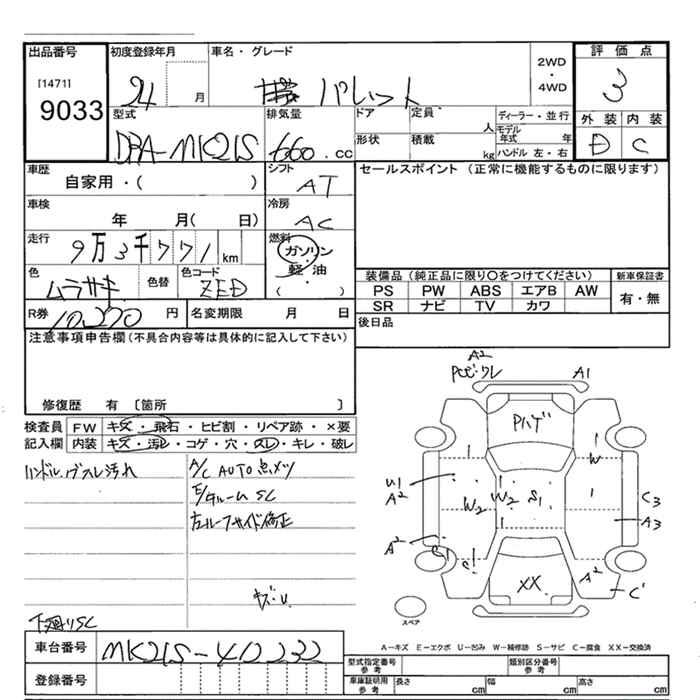 出品番号
[1471]
9033
初度登録年月
24 月
車名・グレード
パレット
2WD
・
4WD
評価点
3
外装 内装
D C
型式
DBA-MK21S
排気量
660.cc
ドア
形状
定員 人
積載 kg
ディーラー・並行
モデル年式 年
ハンドル 左・右
車歴
自家用・( )
シフト
AT
セールスポイント (正常に機能するものに限ります)
車検
年 月( 日)
冷房
AC
走行
9万3千771km
燃料
ガソリン
・
軽油
( )
色
ムラサキ
色替
色コード
ZED
装備品 (純正品に限り○をつけてください)
新車保証書
PS PW ABS エアB AW
SR ナビ TV カワ
有・無
R券 10,270 円
名変期限 月 日
後日品
注意事項申告欄(不具合内容等は具体的に記入して下さい)
修復歴 有 〔箇所 〕
検査員記入欄
FW キズ・飛石・ヒビ割・リペア跡・×要
内装 キズ・汚レ・コゲ・穴・スレ・キレ・破レ
ハンドル、グスレ汚れ
A/C AUTO点メツ
E/gルームSC
左ルーフサイド修正
キズ・U
下廻りSC
A2
A1
Pハゲ
W
U1
A2
W2
W2
S1
C3
A3
A2
S1
A2
C1
XX
スペア
A-キズ E-エクボ U-凹み W-補修跡 S-サビ C-腐食 XX-交換済
車台番号
MK21S-402232
登録番号
型式指定番号
参考
類別区分番号
参考
車庫証明用
参考
長さ cm 幅 cm 高さ cm